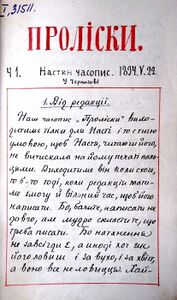 I, 31511.
ПРОЛІСКИ.
Ч 1. Настин часопис. 1894. V. 22.
У Чернигові
1. Від редакції.
Наш часопис „Проліски" вихо-
дитиме тільки для Насті і то с тією
умовою, щоб Настя, читаючи його,
не випускала на йому печаті пальцями.
Виходитиме він коли схоче,
то б-то тоді, коли редакція мати-
ме змогу й вільний час, щоб його
написати. Бо, бачите, написати не-
довго, але мудро скласти те, що
треба писати. Бо натхнення
не завсігди є, а иноді хоч як
його ловиш і за вухо, і за хвіст,
а воно все не ловиться.